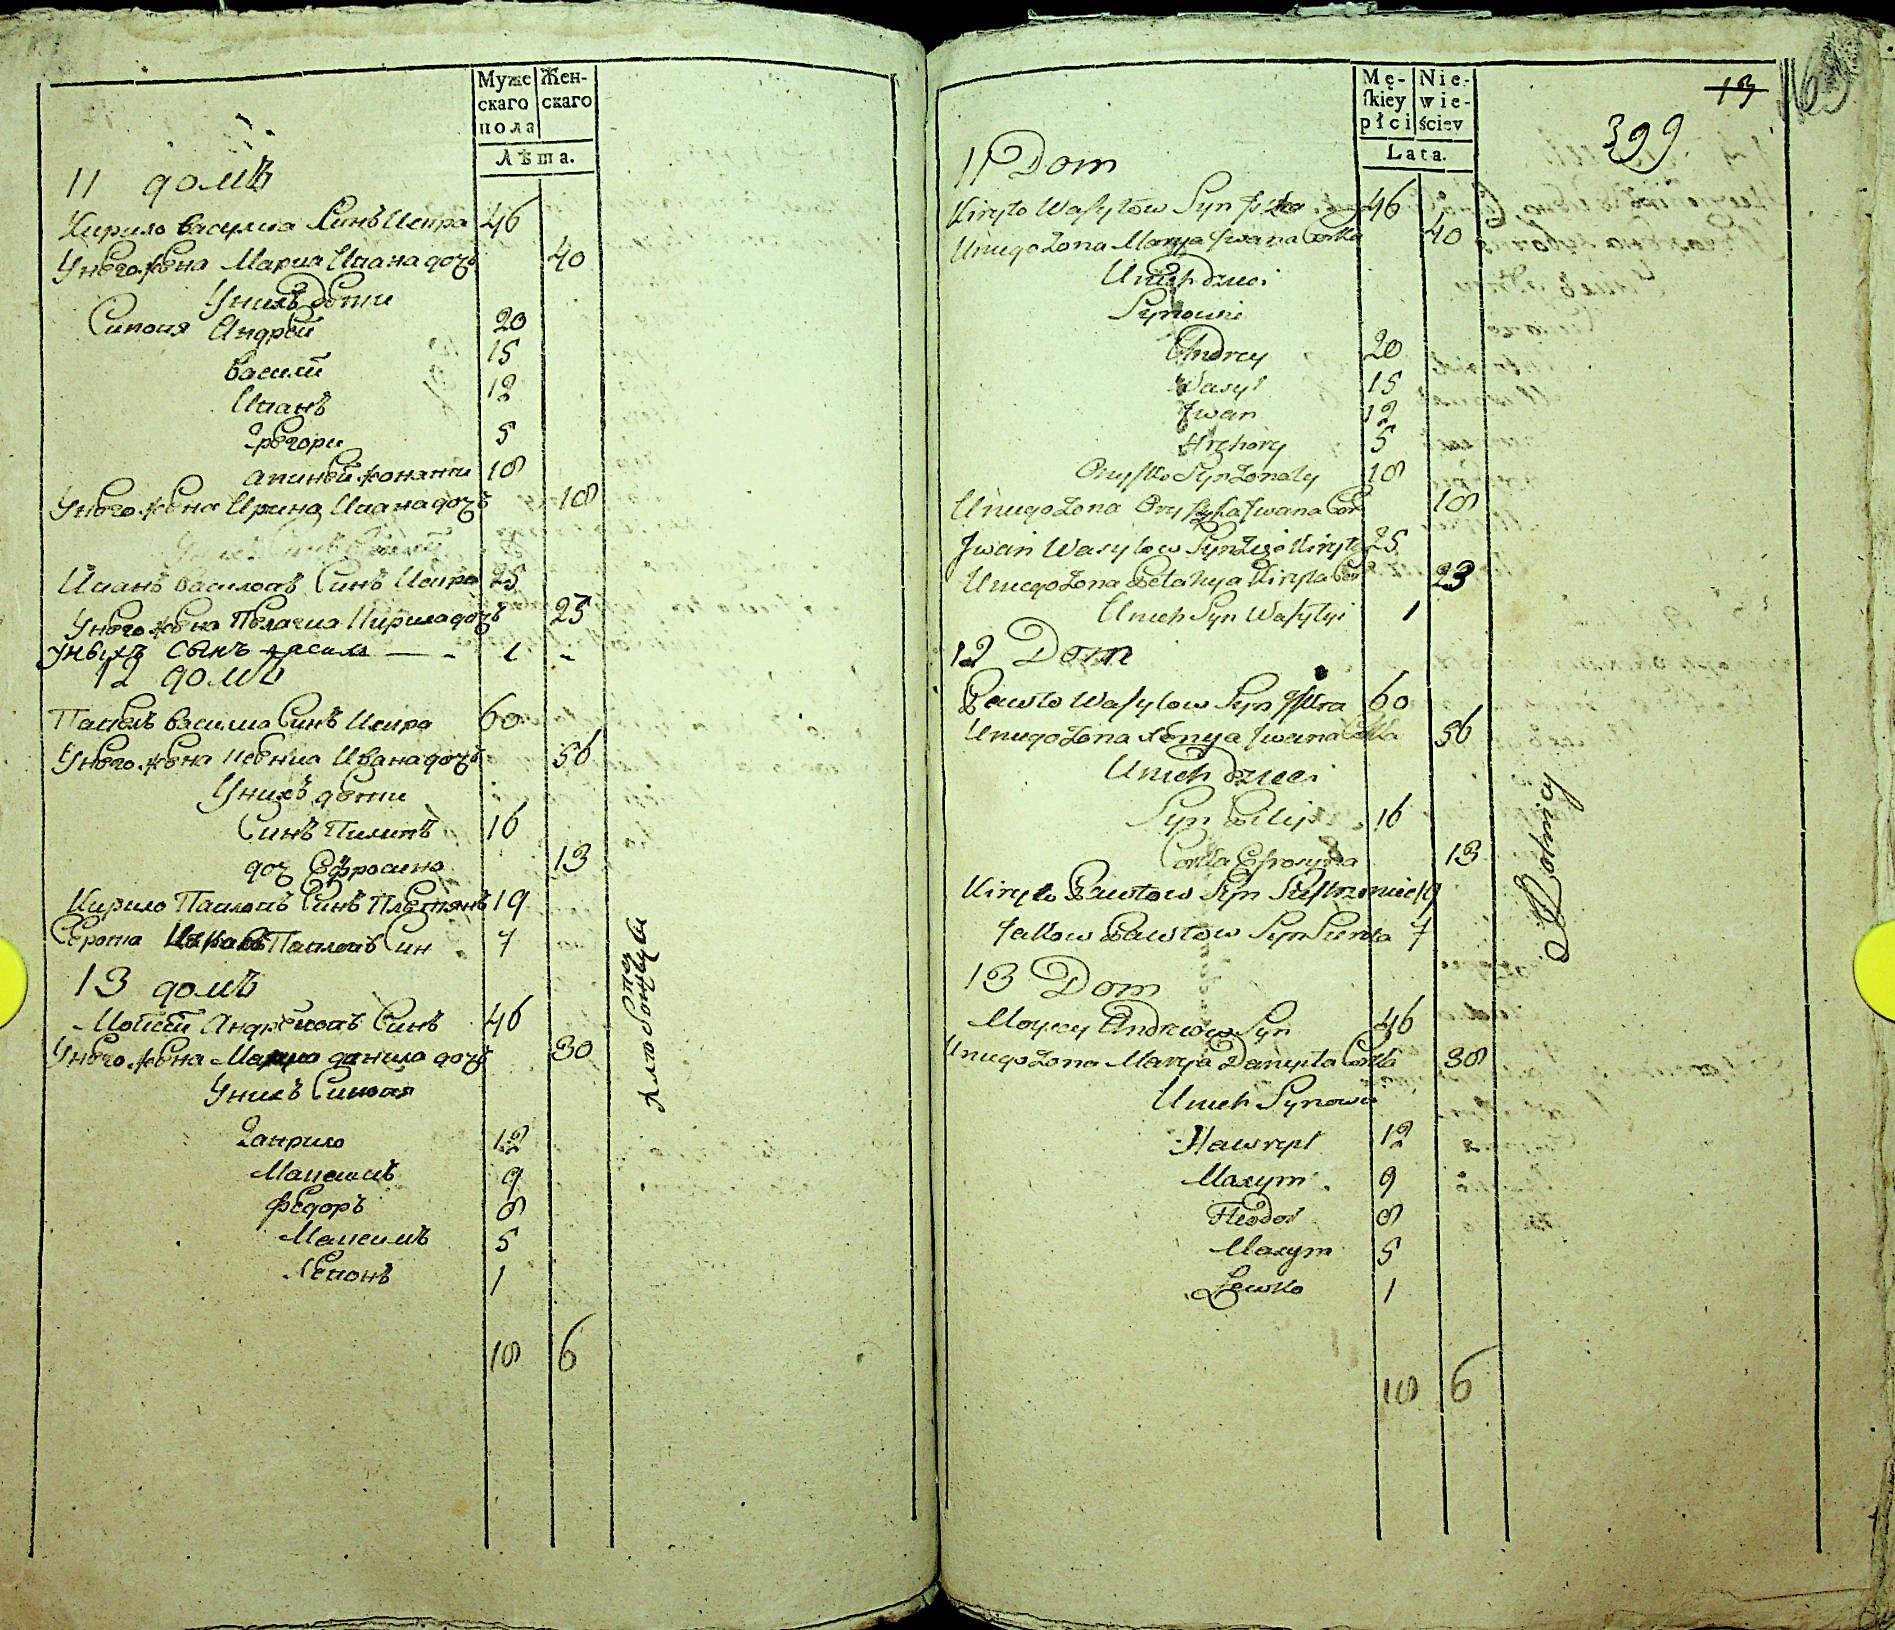 Муже
скаго
пола
Жен-
скаго
Лѣта.
11 домъ
Кирило васильа Синъ Искра 46
Унего жена Мариа Ивана дочъ 40
Унихъ Дети
Синовя Андрей 20
василій 15
Иванъ 12
Грегори 5
жонати 18
Унего жена Ирина Ивана дочъ 18
Иванъ василовъ Синъ Искра 25
Унего жена Пелагиа Кирила дочъ 25
унихъ сынъ 1 -
12 домъ
Павелъ василиа Синъ Искра 60
Унего жена Ивана дочъ 56
Унихъ дети
Синъ Пилипъ 16
доч Ефросина 13
Кирило Павловъ Синъ 19
Серота Павловъ Син 7
13 домъ
Мойсей Андреевъ Синъ 46
Унего жена Мариа данила дочъ 30
Унихъ Синовя
Гаврило 12
Максимъ 9
федоръ 8
Максимъ 5
Левонъ 1
18 6
Хлебопашцы
Mę-
skiey
płci
Nie-
wie-
ściey
Lata.
13
399
11 Dom
Kiryło Wasylow Syn Iskra 46
Uniego Zona Marya Jwana Corka 40
Unich dzieci
Synowie
Andrey 20
Wasyl 15
Jwan 12
Hrehory 5
Onysko Syn Zonaty 18
Uniego Zona Oryszka Jwana Cor 18
Jwan Wasylow Syn Kiryło 25
Uniego Zona Pelahya Kiryła Cor 23
Unich Syn Wasylyi 1
12 Dom
Pawło Wasylow Syn Iskra 60
Uniego Zona Xenya Jwana Corka 56
Unich Dzieci
Syn Pilip 16
Corka Efrosyna 13
Kiryło Pawłow Syn 19
Jakow Pawłow Syn Sierota 7
13 Dom
Moysey Andreiow Syn 46
Uniego Zona Marya Danyła Corka 38
Unich Synowie
Hawrył 12
Maxym 9
Fieodor 8
Maxym 5
Lewko 1
18 6
Rolnicy